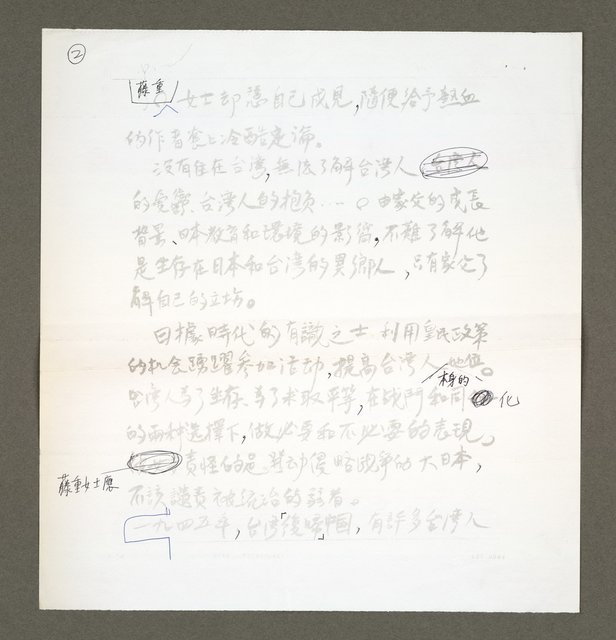 ②
藤重
女士却憑自己成見,隨便給予熱血
的作者套上冷酷定論。
沒有住在台灣,無法了解台灣人
的憂鬱、台灣人的抱負……。由家父的成長
背景、日本教育和環境的影響,不難了解他
是生存在日本和台灣的異鄉人,只有家父了
解自己的立場。
日據時代的有識之士,利用皇民政策
的机会踴躍參加活动,提高台灣人地位。
本身的、
台灣人為了生存、為了求取平等,在战鬥和同化
的兩种選擇下,做必要和不必要的表現,
藤重女士應
責怪的是發动侵略战爭的大日本,
不該譴責被統治的弱者。
一九四五年,台灣「復歸」中国,有許多台灣人